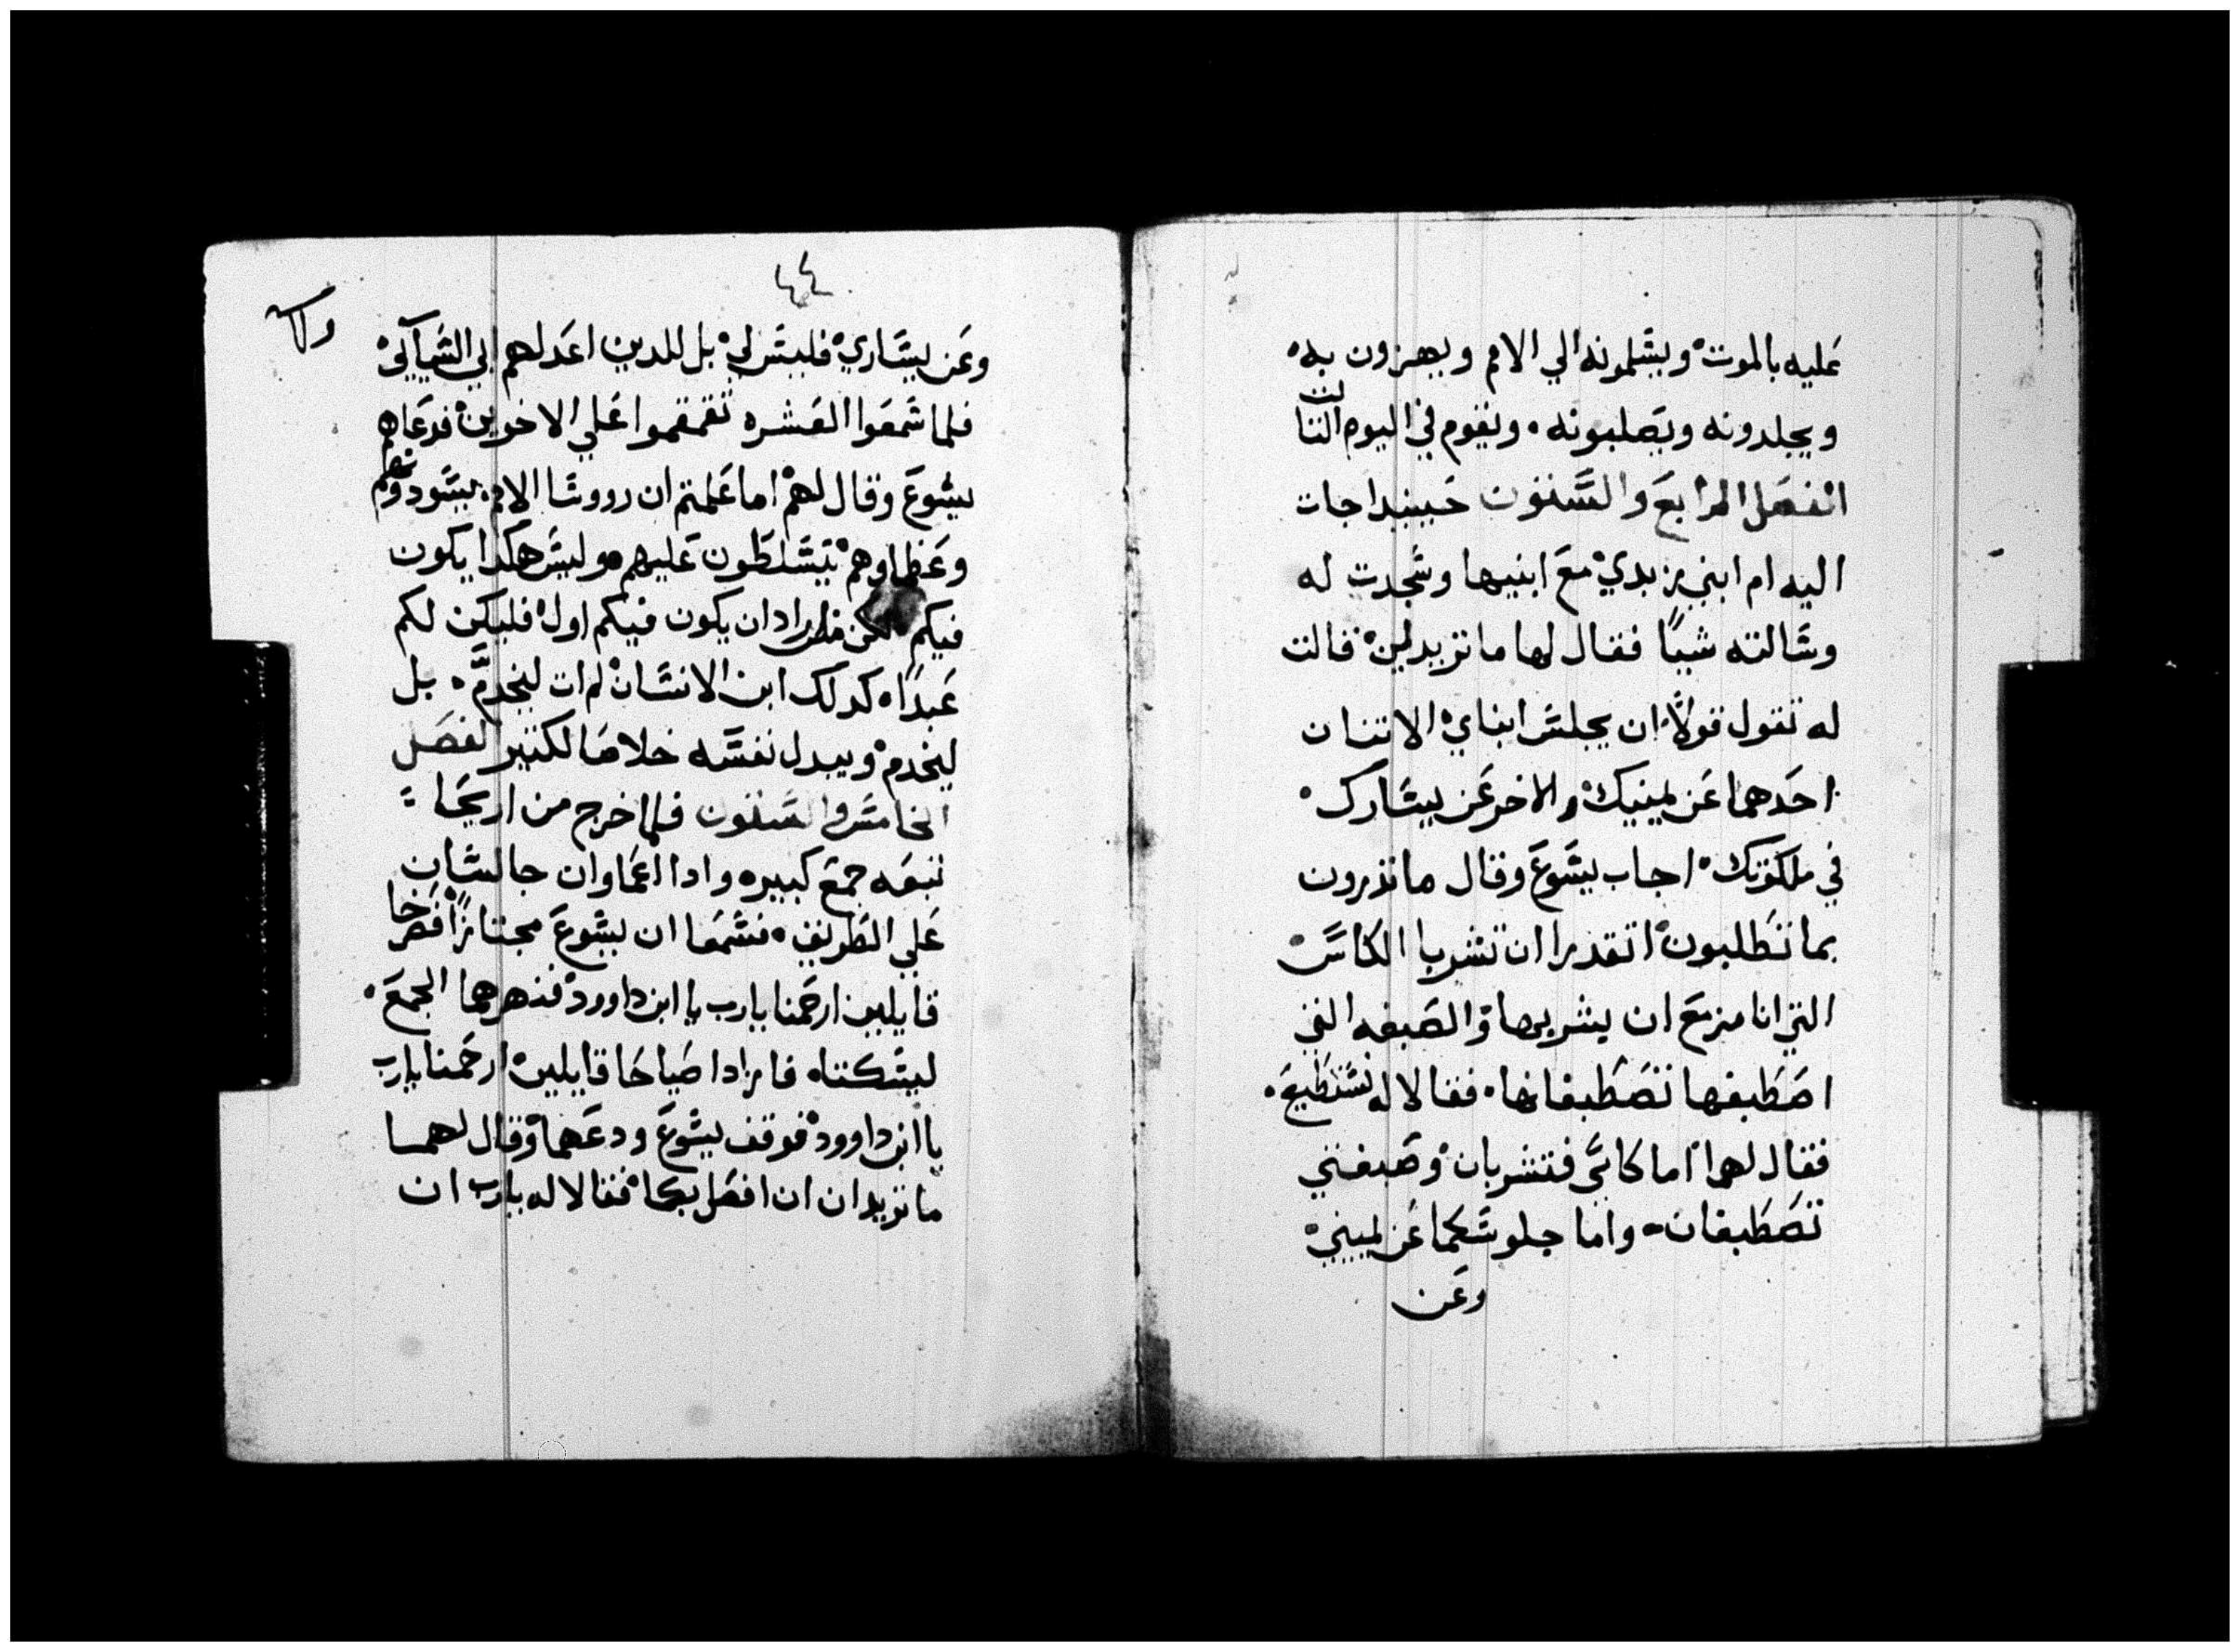 عليه بالموت ويسلمونه الي الامم ويهزون به
ويجلدونه ويصلبونه ويقوم في اليوم الثالث
الفصل الرابع والستون حينيدا جات
اليه ام ابني زبدي مع ابنيها وسجدت له
وسالته شيًا فقال لها ما تريدين قالت
له تقول قولاً ان يجلس ابناي الاتنان
احدهما عن يمينك والاخر عن يسارك
في ملكوتك اجاب يسوع وقال ما تدرون
بما تطلبون اتقدرا ان تشربا الكاس
التي انا مزمع ان يشربها والصبغه التي
اصطبغها تصطبغانها فقالا له نستطيع
فقال لهما اما كاسي فتشربان وصبغتي
تصطبغان واما جلوسكما عن يميني
وعن
٤٤
وعن يساري فليس لي بل للدين اعد لهم
فلما سمعوا العشره تقمقموا علي الاخوين فدعاهم
يسوع وقال لهم اما علمتم ان رووسا الامم يسودونهم
وعظماوهم يتسلطون عليهم وليس هكدا يكون
فيكم لكن من اراد ان يكون فيكم اول فليكن لكم
عبدًا كدلك ابن الانسان لم ات ليخدم بل
ليخدم ويبدل نفسه خلاصا لكتير الفصل
الخامس والستون فلما خرج من اريحا
تبعه جمع كبيره وادا اعماوان جالسان
علي الطريق فسمعا ان يسوع مجتازًا فصرخا
قايلين ارحمنا يارب يا ابن داوود فنهرهما الجمع
ليسكتاه فازدادا صياحا قايلين ارحمنا يارب
يا ابن داوود فوقف يسوع ودعهما وقال لهما
ما تريدان ان افعل بكما فقالا له يارب ان